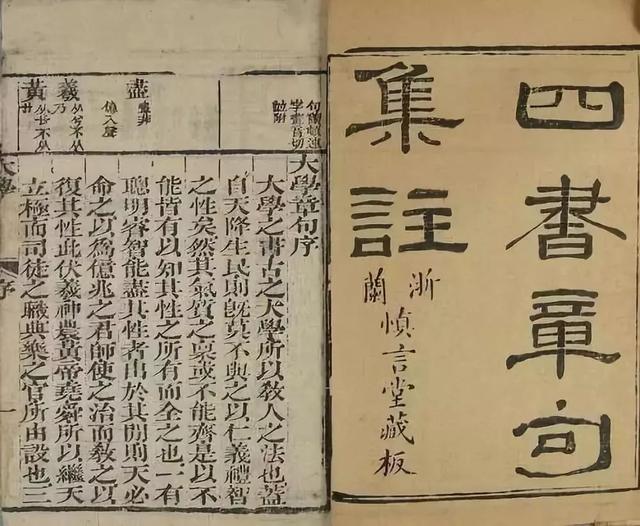 四書章句
集註
浙蘭
慎言堂藏板
字畫音切
盡
羲
黃
大學章句序
大學之書古之大學所以教人之法也蓋
自天降生民則既莫不與之以仁義禮智
之性矣然其氣質之稟或不能齊是以不
能皆有以知其性之所有而全之也一有
聰明睿智能盡其性者出於其閒則天必
命之以為億兆之君師使之治而教之以
復其性此伏羲神農黃帝堯舜所以繼天
立極而司徒之職典樂之官所由設也三
大學
序
一